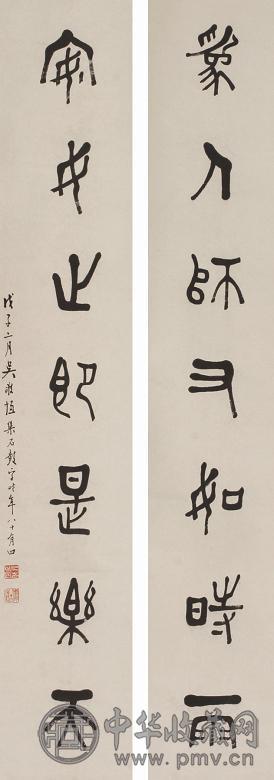 爲人師又如時雨
安女止即是樂天
戊子二月吳敬恆集石鼓字時年八十有四
中华收藏网
www.pmv.cn